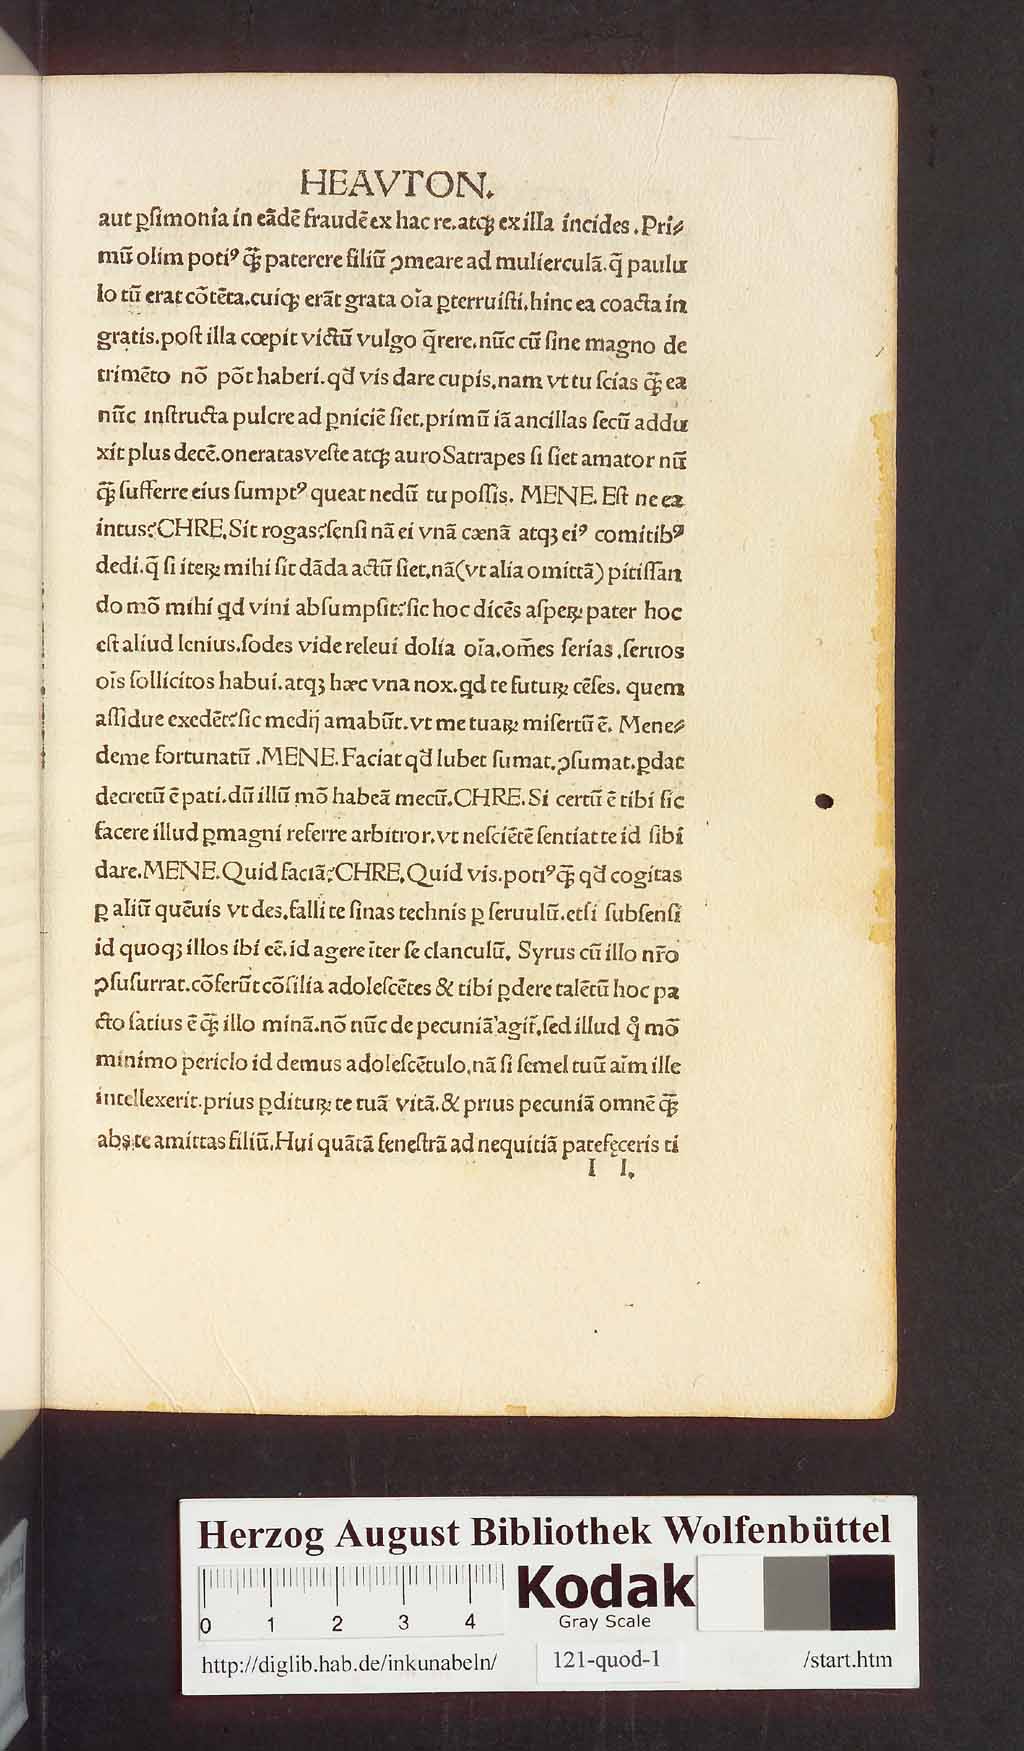 HEAVTON.
aut ꝑſimonia in eãdẽ fraudẽ ex hac re.atqꝫ ex illa incides .Pri⸗
mũ olim potiꝰ q̃ꝫ paterere filiũ ꝯmeare ad mulierculã.q̃ paulu
lo tũ erat cõtẽta.cuiqꝫ erãt grata oĩa ꝑterruiſti.hinc ea coacta in
gratis.poſt illa cœpit victũ vulgo q̃rere.nũc cũ ſine magno de
trimẽto nõ põt haberi.qd̃ vis dare cupis.nam vt tu ſcias q̃ꝫ ea
nũc inſtructa pulcre ad ꝑniciẽ ſiet.primũ iã ancillas ſecũ addu
xit plus decẽ.oneratas veſte atqꝫ auro Satrapes ſi ſiet amator nũ
q̃ꝫ ſufferre eius ſumptꝰ queat nedũ tu poſſis. MENE. Eſt ne ea
intus?CHRE.Sit rogas?ſenſi nã ei vnã cænã atqꝫ eiꝰ comitibꝰ
dedi.q̃ ſi iteꝝ mihi ſit dãda actũ ſiet.nã(vt alia omittã) pitiſſan
do mõ mihi qd vini abſumpſit?ſic hoc dicẽs aſpeꝝ pater hoc
eſt aliud lenius.ſodes vide releui dolia oĩa.om̃es ſerias .ſeruos
oĩs ſollicitos habui.atqꝫ hæc vna nox.qd te futuꝝ cẽſes. quem
aſſidue exedẽt?ſic medij amabũt.vt me tuaꝝ miſertũ ẽ. Mene⸗
deme fortunatũ .MENE.Faciat qd̃ lubet ſumat.ꝯſumat.ꝑdat
decretũ ẽ pati.dũ illũ mõ habeã mecũ.CHRE.Si certũ ẽ tibi ſic
facere illud ꝑmagni referre arbitror.vt neſciẽtẽ ſentiat te id ſibi
dare.MENE.Quid faciã?CHRE.Quid vis.potiꝰq̃ꝫ qd̃ cogitas
ꝑ aliũ quẽuis vt des.falli te ſinas technis ꝑ ſeruulũ.etſi ſubſenſi
id quoqꝫ illos ibi eẽ.id agere ĩter ſe clanculũ. Syrus cũ illo nr̃o
ꝯſuſurrat.cõferũt cõſilia adoleſcẽtes & tibi ꝑdere talẽtũ hoc pa
cto ſatius ẽ q̃ꝫ illo minã.nõ nũc de pecuniã agit̃.ſed illud qͦ mõ
minimo periclo id demus adoleſcẽtulo.nã ſi ſemel tuũ aĩm ille
intellexerit.prius ꝑdituꝝ te tuã vitã.& prius pecuniã omnẽ q̃ꝫ
abs te amittas filiũ.Hui quãtã feneſtrã ad nequitiã patefęceris ti
I I.
Herzog August Bibliothek Wolfenbüttel
0 1 2 3 4
Kodak
Gray Scale
http://diglib.hab.de/inkunabeln/ 121-quod-1 /start.htm